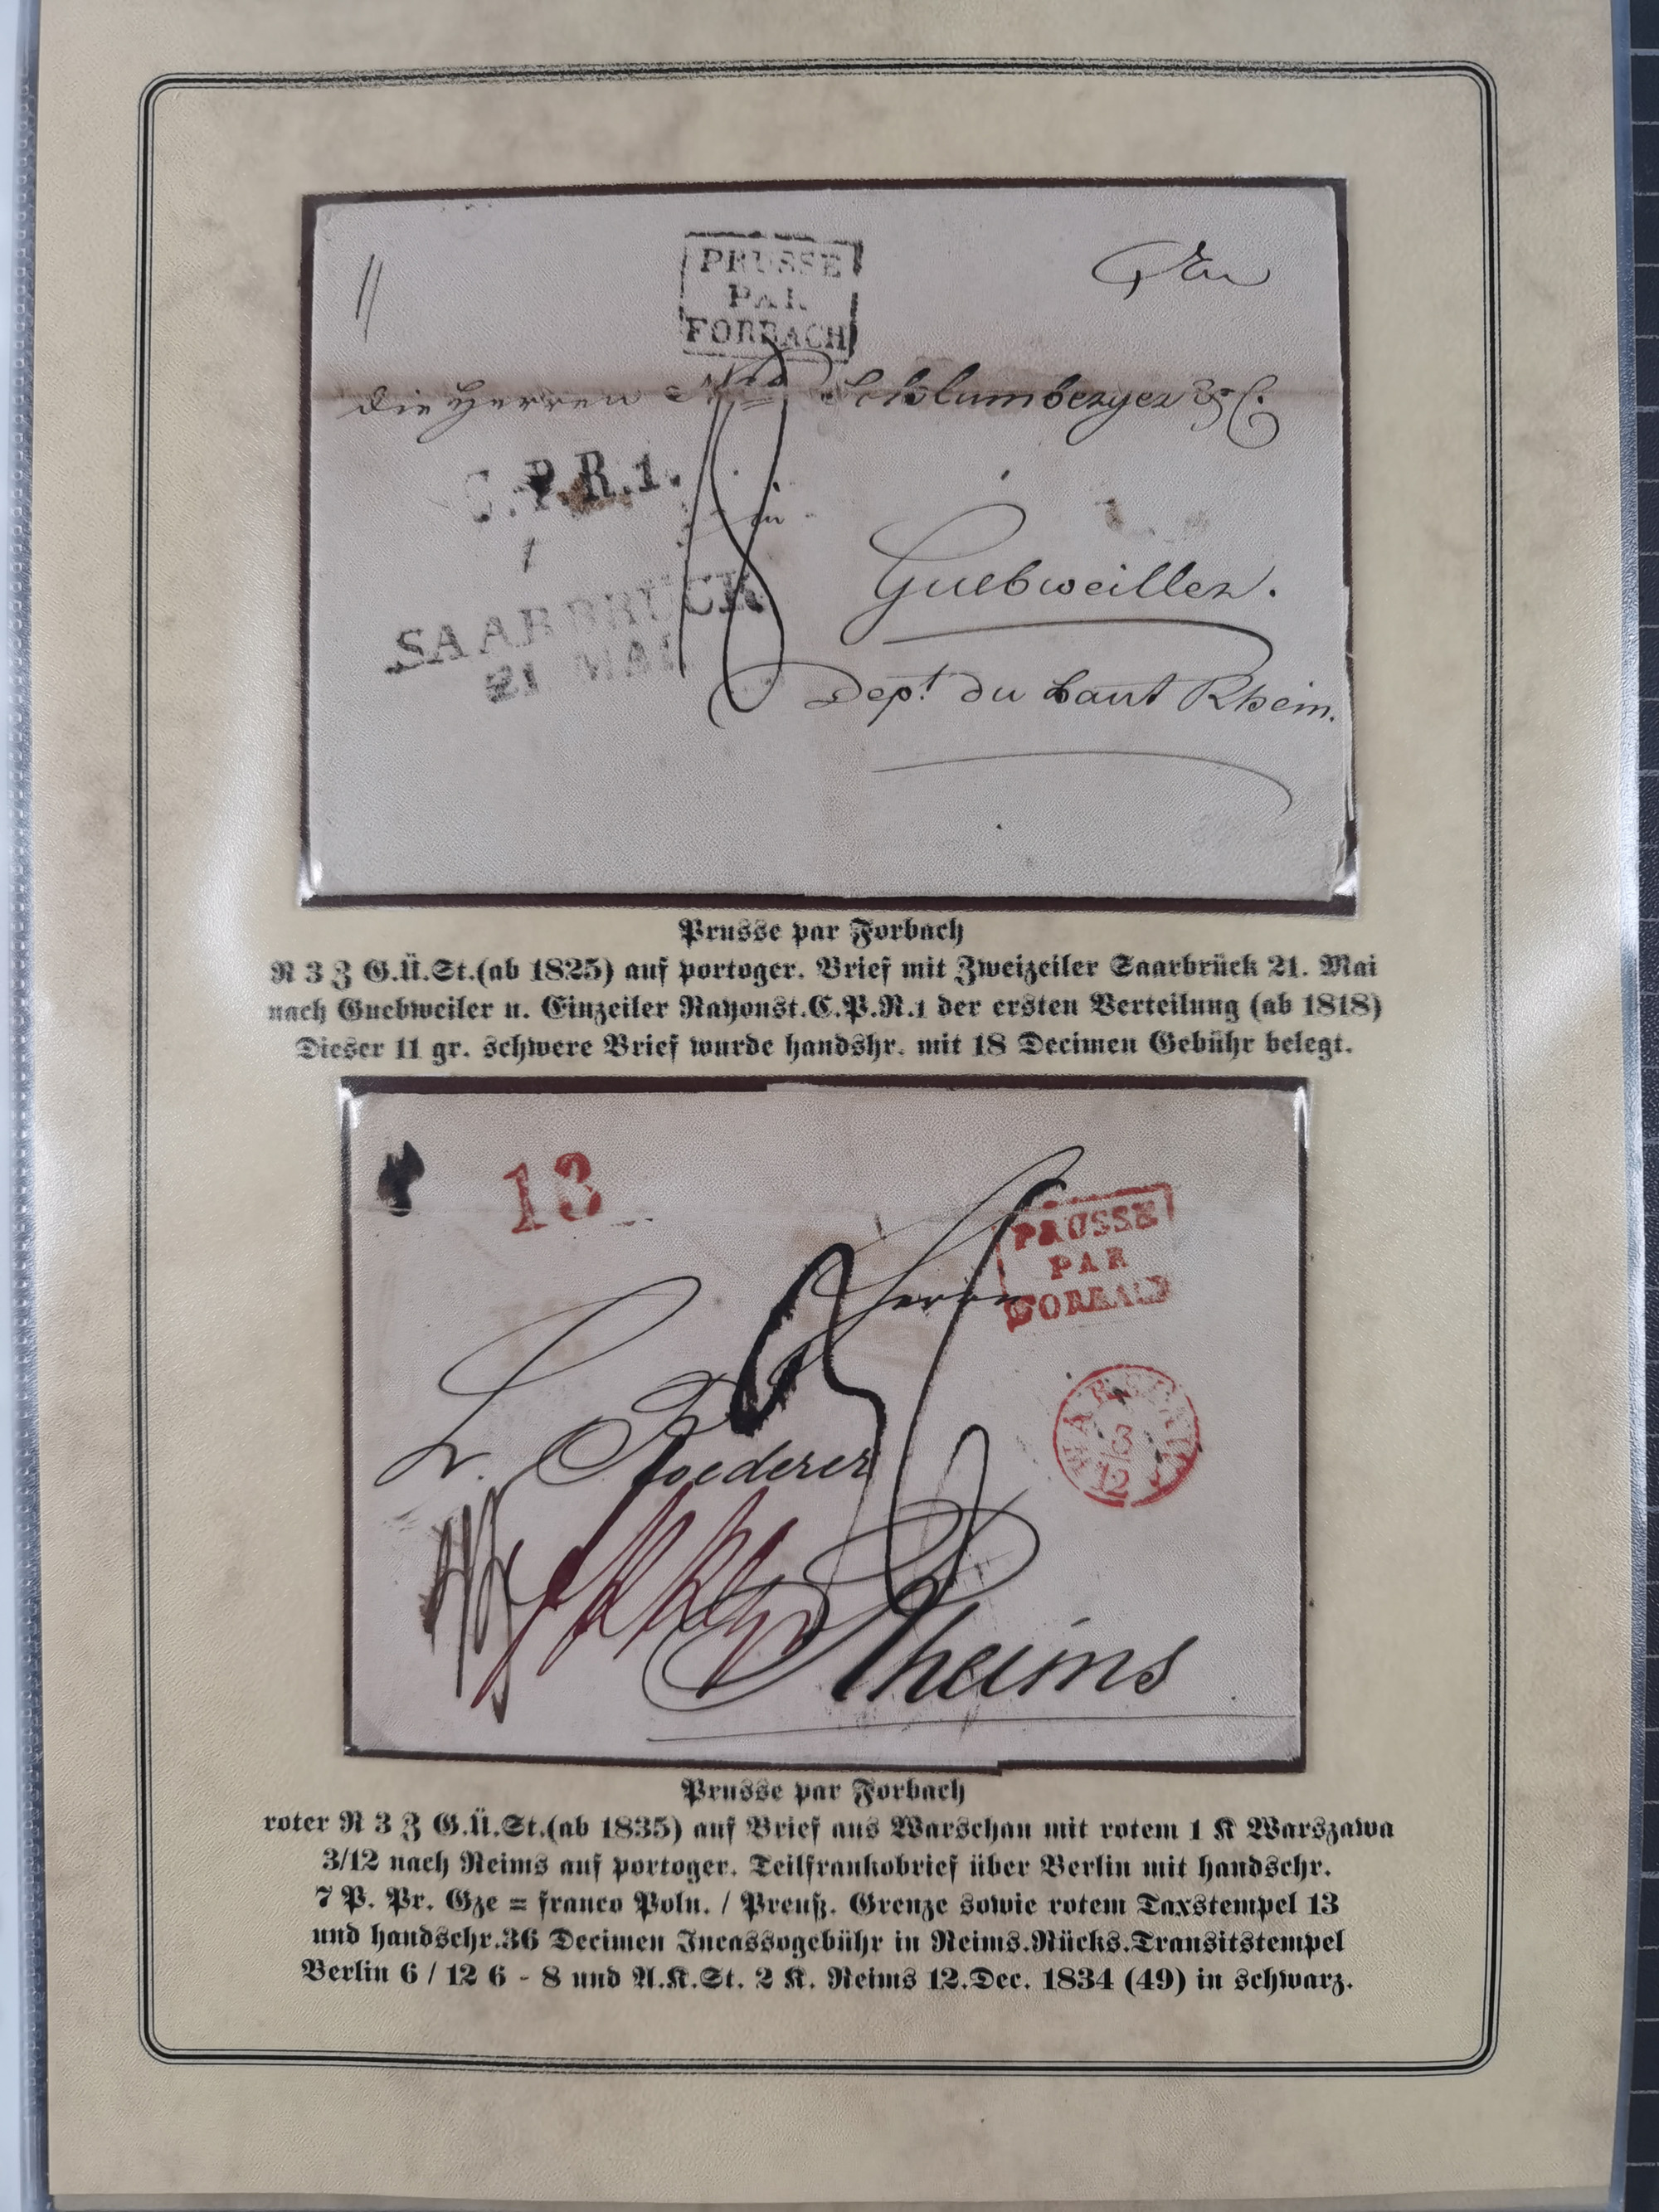 PRUSSE
PAR
FORBACH
11
An
die Herren Schlumberger & C.
C.P.R.1.
in
1
18
Guebweiller.
SAARBRÜCK
21 MAI
Dept. du haut Rhein.
Prusse par Forbach
R 3 Z G.Ü.St.(ab 1825) auf portoger. Brief mit Zweizeiler Saarbrück 21. Mai
nach Guebweiler u. Einzeiler Rayonst.C.P.R.1 der ersten Verteilung (ab 1818)
Dieser 11 gr. schwere Brief wurde handshr. mit 18 Decimen Gebühr belegt.
13
PRUSSE
PAR
FORBACH
Herrn
36
L. Roederer
3
12
Rheims
Prusse par Forbach
roter R 3 Z G.Ü.St.(ab 1835) auf Brief aus Warschau mit rotem 1 K Warszawa
3/12 nach Reims auf portoger. Teilfrankobrief über Berlin mit handschr.
7 P. Pr. Gze = franco Poln. / Preuß. Grenze sowie rotem Taxstempel 13
und handschr.36 Decimen Incassogebühr in Reims.Rücks.Transitstempel
Berlin 6 / 12 6 - 8 und A.K.St. 2 K. Reims 12.Dec. 1834 (49) in schwarz.